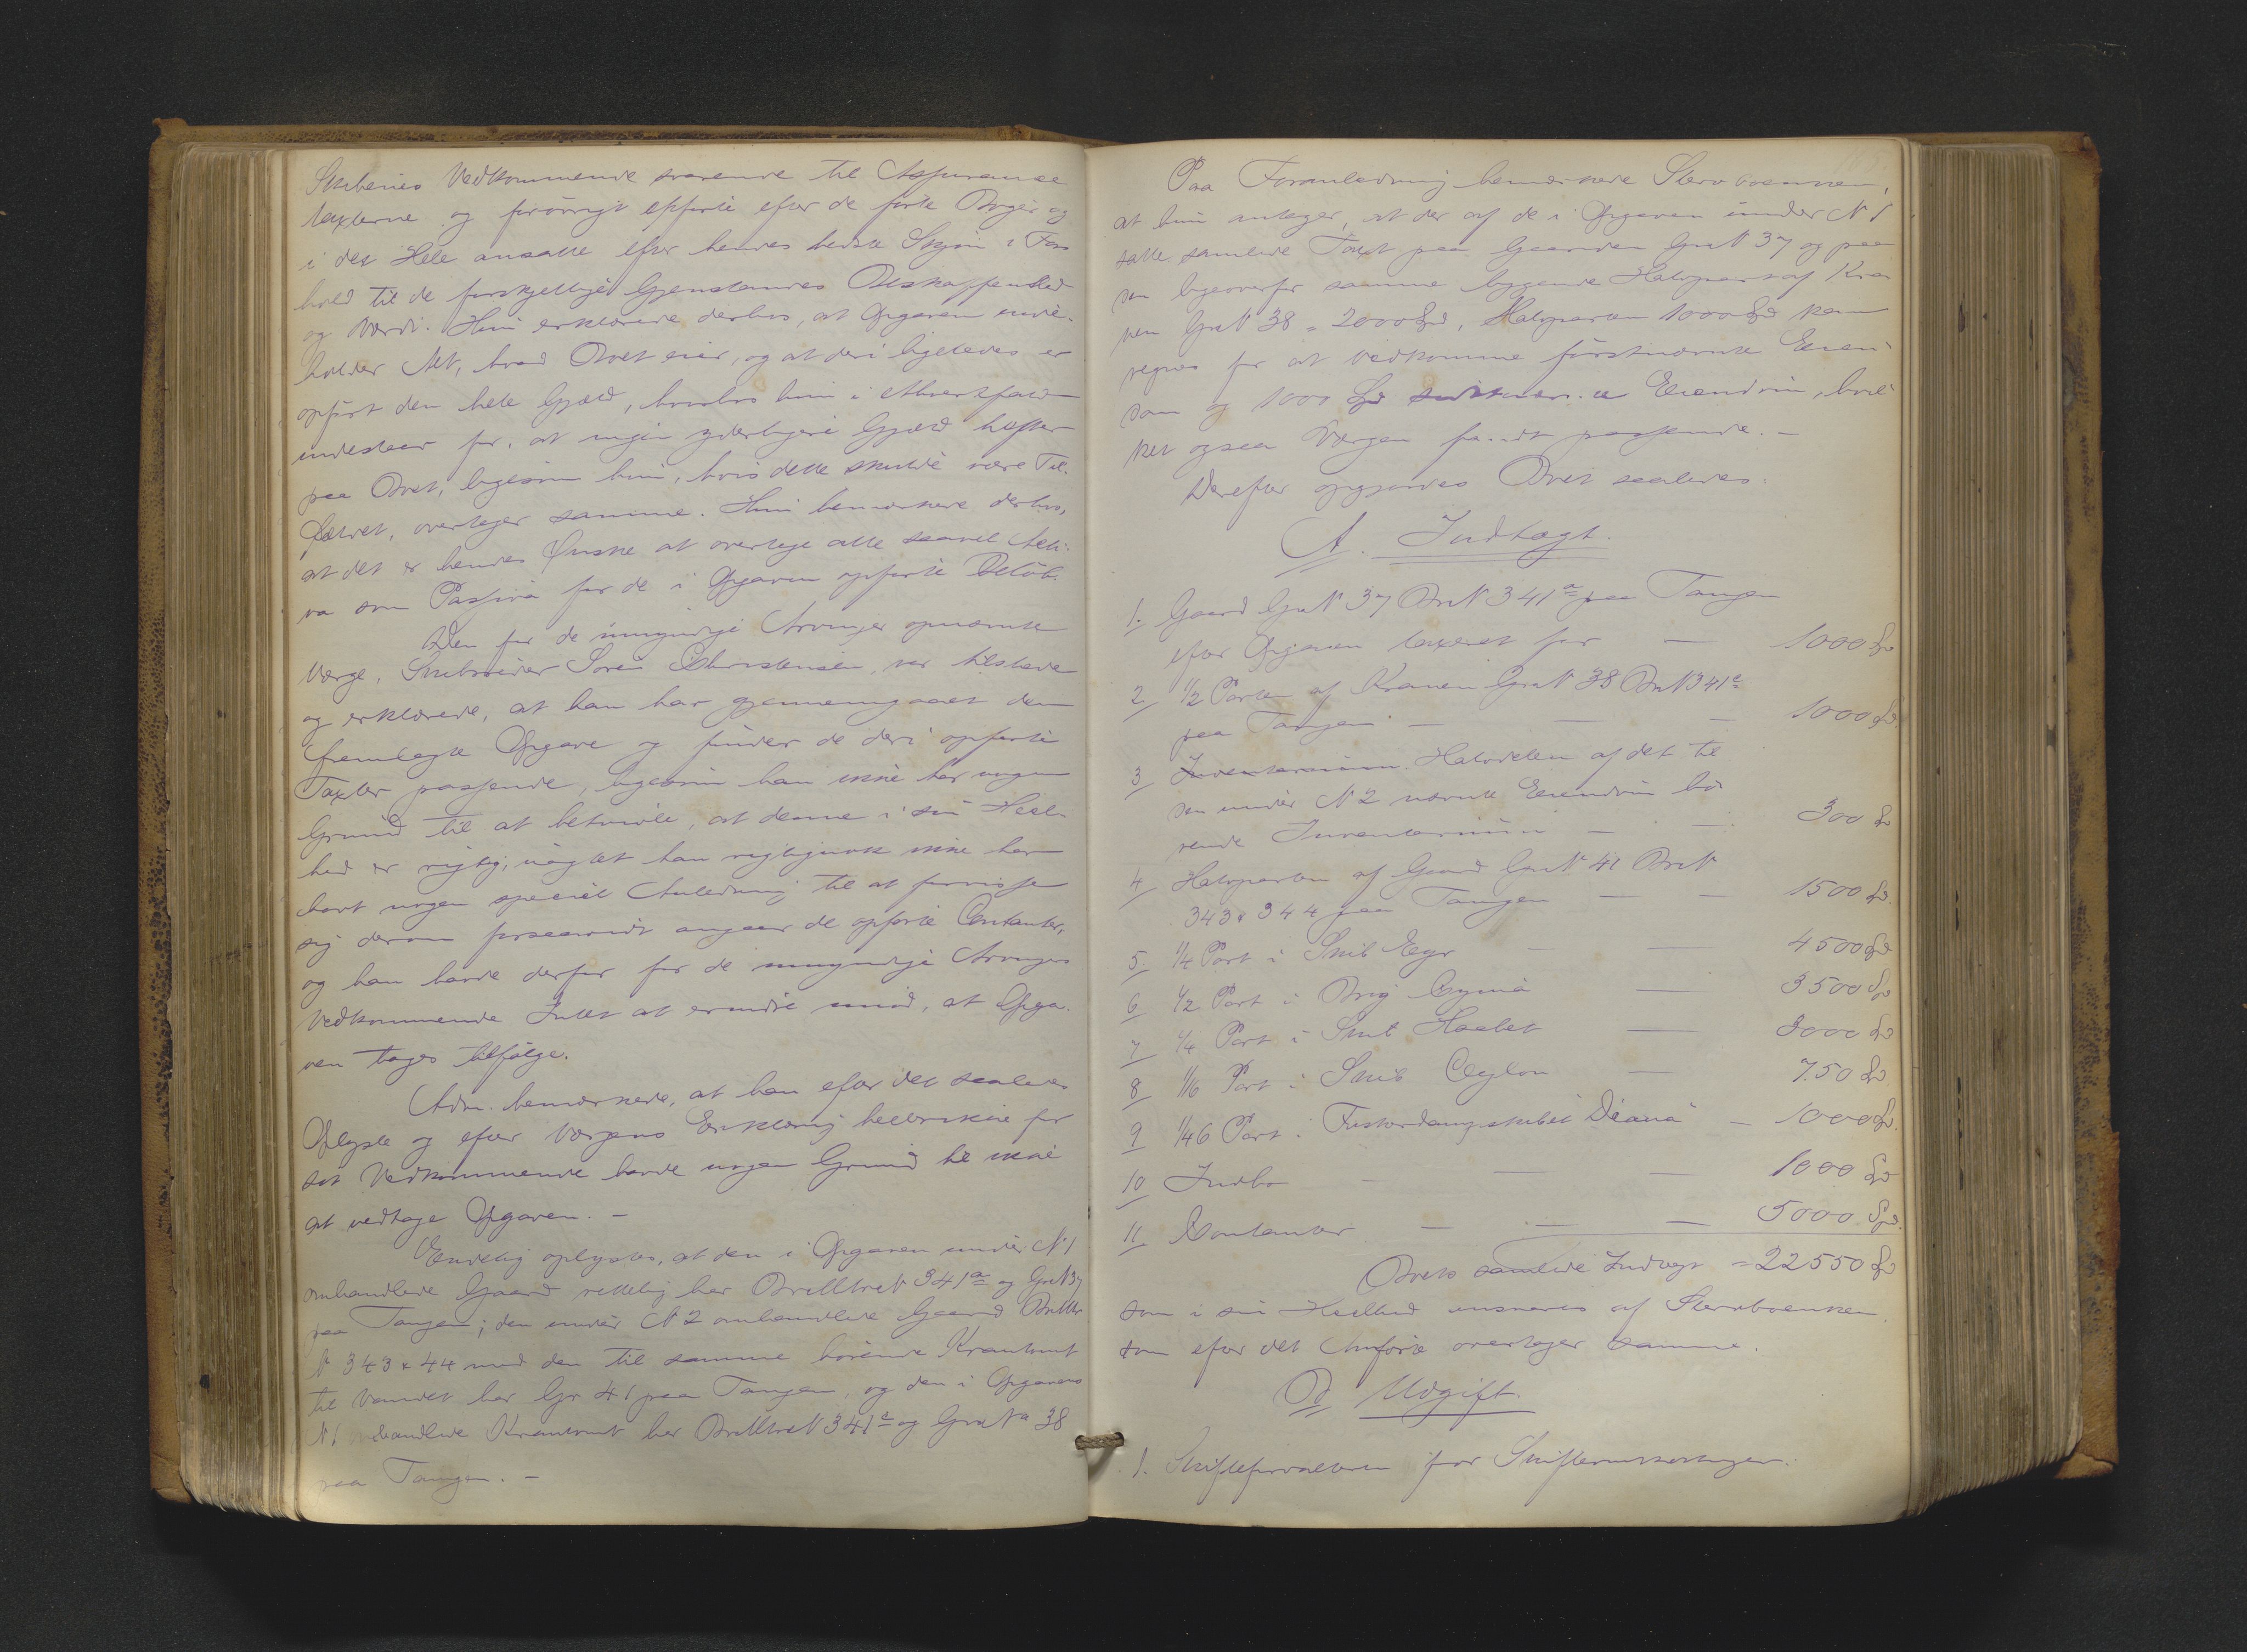 Skibenes Vedkommende svarende til Assurance
taxterne og forövrigt opførte efter de førte Bøger og
i det Hele ansatte efter hendes bedste Skjøn i For
hold til de forskjellige Gjenstandes Beskaffenhed
og Værdi. Hun erklærede derhos, at Opgaven inde-
holder Alt, hvad Boet eier, og at deri ligeledes er
opført den hele Gjæld, hvorhos hun i ethvert fald
indestaar for, at ingen yderligere Gjæld hæfter
paa Boet, ligesom hun, hvis dette skulde være Til-
fældet, overtager samme. Hun bemærkede derhos,
at det er hendes Ønske at overtage alle saavel Acti-
va som Passiva for de i Opgaven opførte Beløb.
Den for de umyndige Arvinger opnævnte
Værge, Skibsreder Søren Christensen, var tilstede
og erklærede, at han har gjennemgaaet den
fremlagte Opgave og finder de deri opførte
Taxter passende, ligesom han ikke har nogen
Grund til at betvivle, at denne i sin Heel-
hed er rigtig, uagtet han rigtignok ikke har
havt nogen speciel Anledning til at forvisse
sig derom forsaavidt angaar de opførte Contanter,
og han havde derfor for de umyndige Arvingers
Vedkommende Intet at erindre imod, at Opga-
ven tages tilfølge.
Adm. bemærkede, at han efter det saaledes
Oplyste og efter Værgens Erklæring hellerikke for
sit Vedkommende havde nogen Grund til ikke
at vedtage Opgaven. -
Endelig oplystes, at den i Opgaven under N 1
omhandlede Gaard rettelig har Br Mtr N 341a og Gr N 37
paa Tangen; den under N 2 omhandlede Gaard Br Mtr
N 343 & 44 med den til samme hørende Krantomt
til Vandet har Gr 41 paa Tangen, og den i Opgavens
N 1 omhandlede Krantomt har Br Mtr N 341c og Gr N 38
paa Tangen. -
Paa Foranledning bemærkede Stervboenken,
at hun antager, at der af de i Opgaven under N 1
satte samlede Taxt paa Gaarden Gr N 37 og paa
den ligeoverfor samme liggende Halvpart af Kra
nen Gr N 38 = 2000 Spd, Halvparten 1000 Spd kan
regnes for at vedkomme førstnævnte Eien-
dom og 1000 Spd Eiendom, hvil
ket ogsaa Værgen fandt passende. -
Derefter opgjordes Boet saaledes:
A. Indtægt.
1. Gaard Gr N 37 Br N 341a paa Tangen
efter Opgaven taxeret for — 1000 Spd
2 1/2 Parten af Kranen Gr N 38 Br N 341c
paa Tangen — — — 1000 Spd
3 Inventarium Halvdelen af det til
den under N 2 nævnte Eiendom hø
rende Inventarium — — 300 Spd
4 Halvparten af Gaard Gr N 41 Br N
343 & 344 paa Tangen — — 1500 Spd
5. 1/4 Part i Skib Ægir — — 4500 Spd
6 1/2 Part i Brig Cyma — 3500 Spd
7 1/4 Part i Skib Haabet — 3000 Spd
8 1/16 Part i Skib Ceylon — 750 Spd
9 1/46 Part i Diana — 1000 Spd.
10 Indbo — — — 1000 Spd
11 Contanter — — — 5000 Spd.
Boets samlede Indtægt = 22550 Spd
som i sin Heelhed indsvares af Stervboenken
som efter det Anførte overtager samme.
B. Udgift.
1. Skifteforvalteren for Skifteomkostninger: